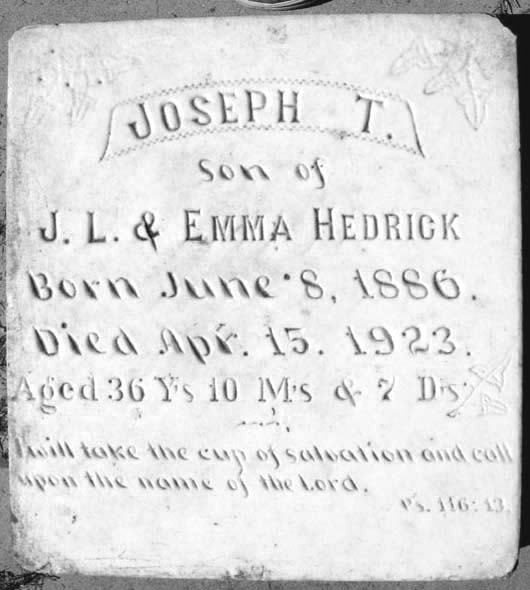 JOSEPH T.
Son of
J. L. & EMMA HEDRICK
Born June 8, 1886.
Died Apr. 15. 1923.
Aged 36 Ys 10 Ms & 7 Ds
I will take the cup of salvation and call
upon the name of the Lord.
Ps. 116:13.